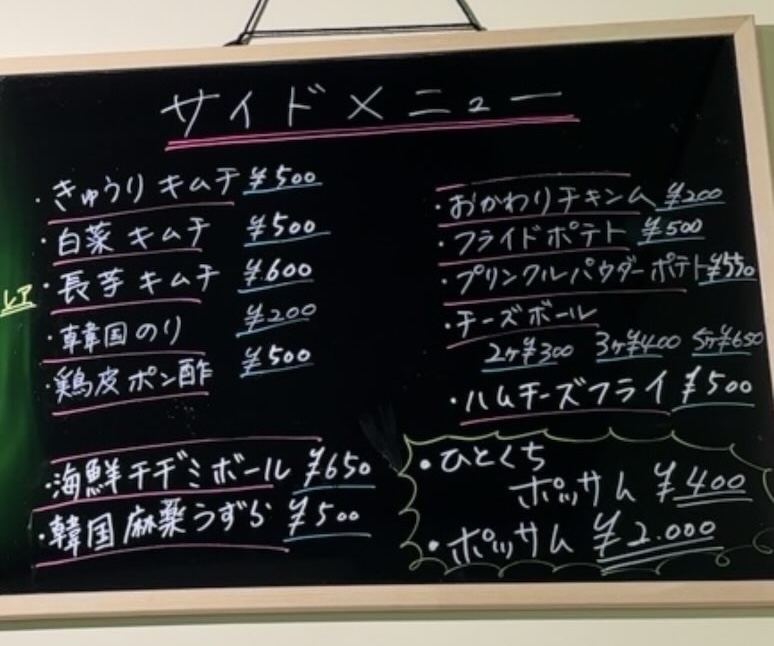 サイドメニュー
・きゅうりキムチ ¥500
・白菜キムチ ¥500
レア
・長芋キムチ ¥600
・韓国のり ¥200
・鶏皮ポン酢 ¥500
・海鮮チヂミボール ¥650
・韓国麻薬うずら ¥500
・おかわりチキンム ¥200
・フライドポテト ¥500
・プリンクルパウダーポテト ¥550
・チーズボール
2ヶ¥300 3ヶ¥400 5ヶ¥650
・ハムチーズフライ ¥500
・ひとくち
ポッサム ¥400
・ポッサム ¥2.000